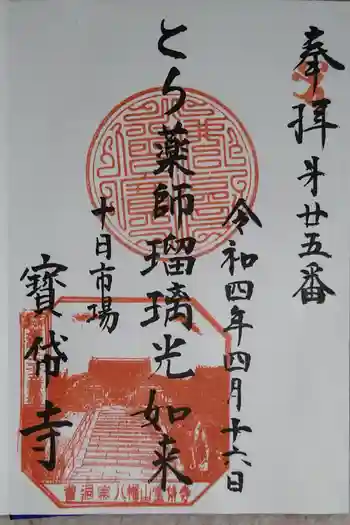 奉拝 才廿五番
令和四年四月十六日
とら薬師瑠璃光如来
十日市場
寳袋寺
曹洞宗八幡山宝袋寺